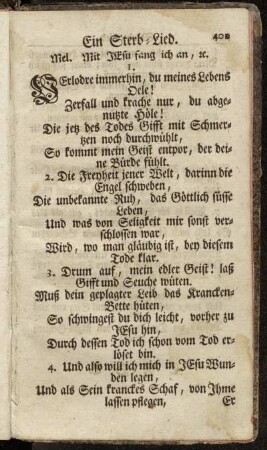 Ein Sterb-Lied. 402
Mel. Mit JEsu fang ich an, ꝛc.
1.
VErlodre immerhin, du meines Lebens
Oele!
Zerfall und krache nur, du abge-
nutzte Höle!
Die jetz des Todes Gifft mit Schmer-
tzen noch durchwühlt,
So kommt mein Geist entpor, der dei-
ne Bürde fühlt.
2. Die Freyheit jener Welt, darinn die
Engel schweben,
Die unbekannte Ruh, das Göttlich süsse
Leben,
Und was von Seligkeit mir sonst ver-
schlossen war,
Wird, wo man gläubig ist, bey diesem
Tode klar.
3. Drum auf, mein edler Geist! laß
Gifft und Seuche wüten.
Muß dein geplagter Leib das Krancken-
Bette hüten,
So schwingest du dich leicht, vorher zu
JEsu hin,
Durch dessen Tod ich schon vom Tod er-
löset bin.
4. Und also will ich mich in JEsu Wun-
den legen,
Und als Sein kranckes Schaf, von Ihme
lassen pflegen,
Er